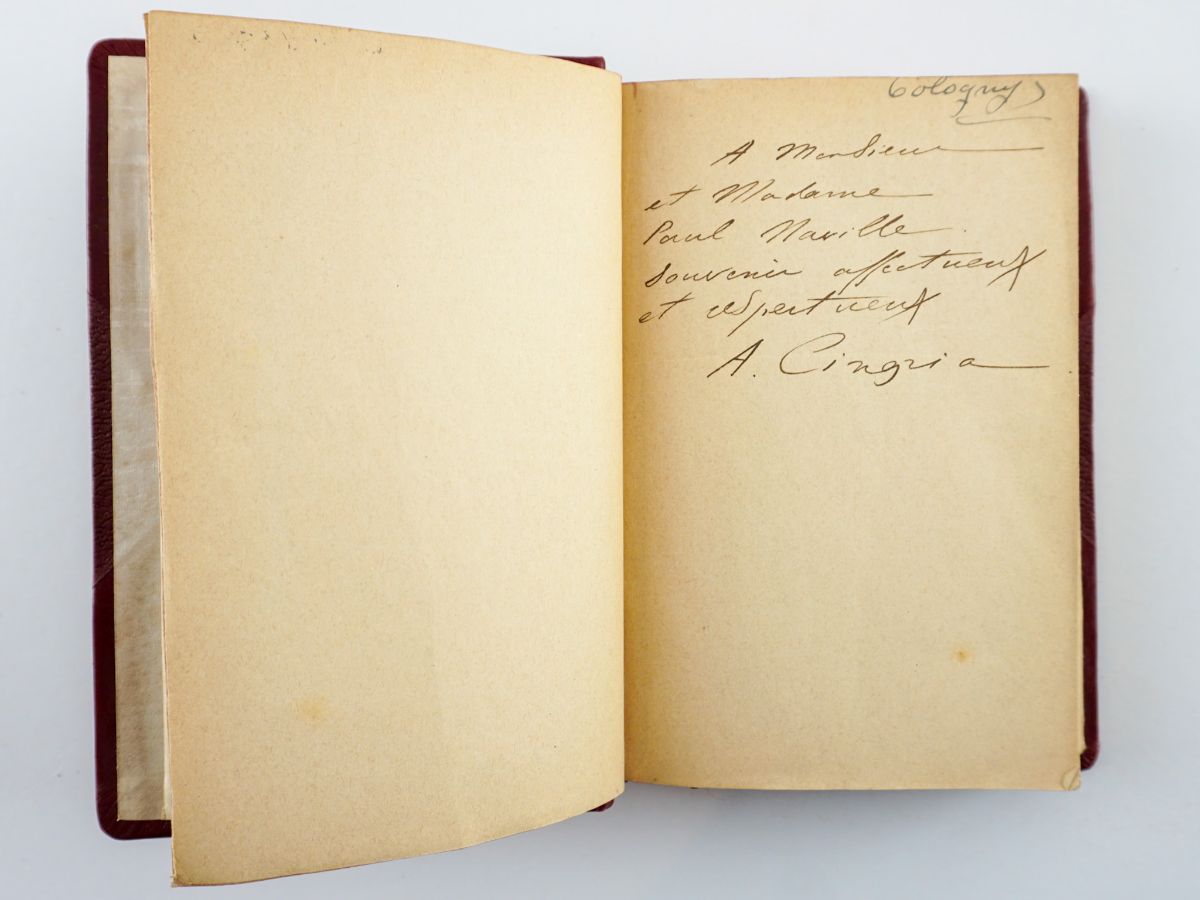 Cologny
A Monsieur
et Madame
Paul Naville.
Souvenir affectueux
et respectueux
A. Cingria.